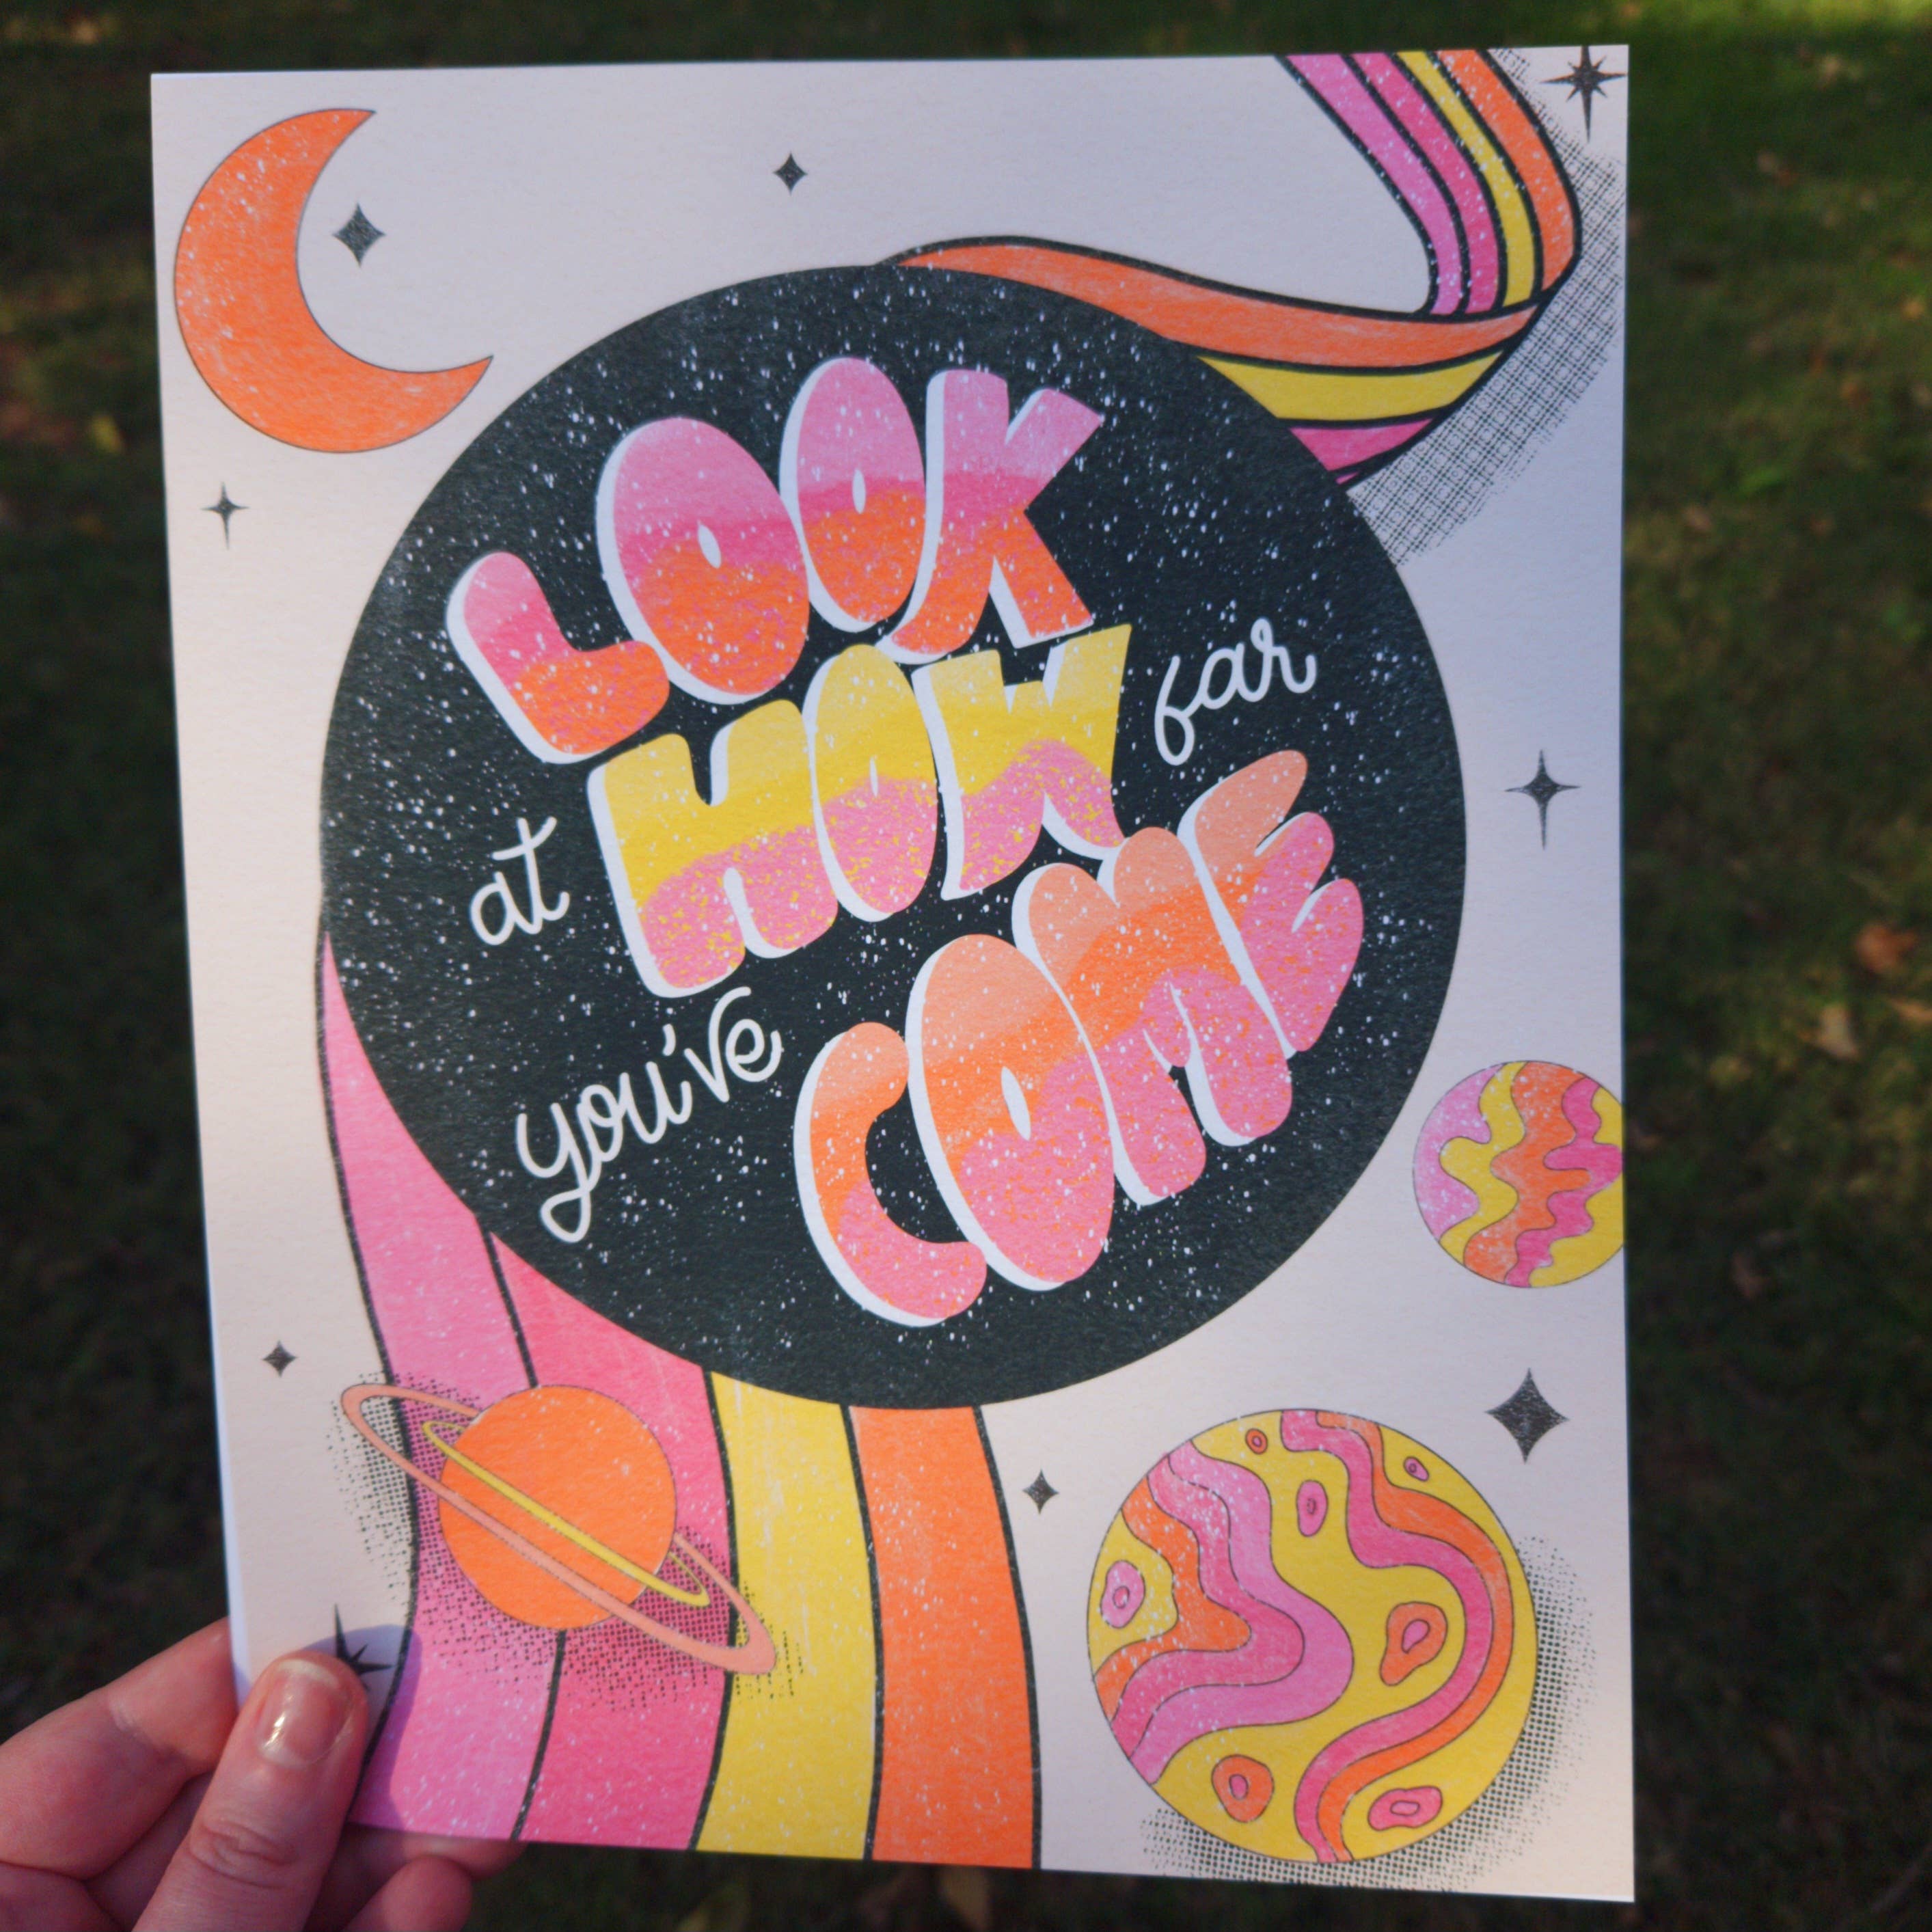 LOOK
at HOW far
you've COME